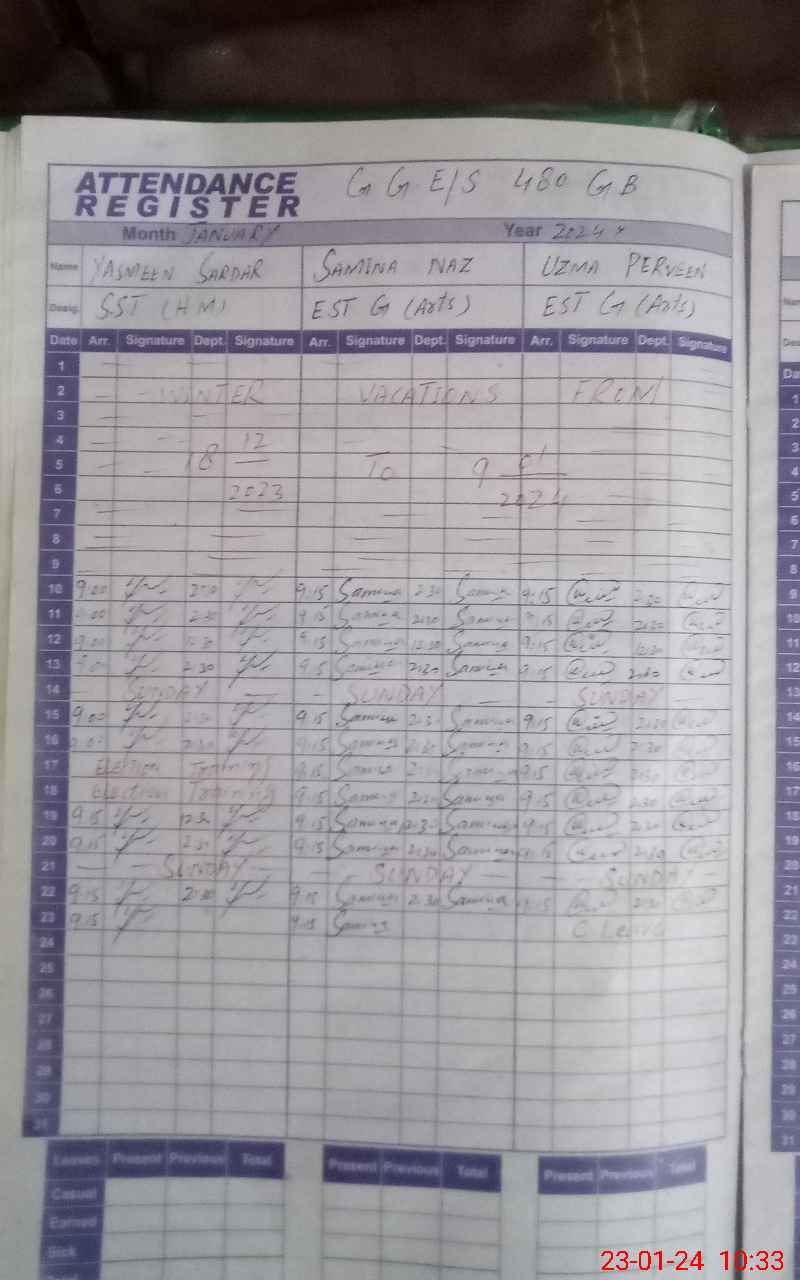 ATTENDANCE REGISTER G G E/S 480 GB
Month JANUARY Year 2024
Name YASMEEN SARDAR SAMINA NAZ UZMA PERVEEN
Desig. SST (HM) EST G (Arts) EST G (Arts)
Date Arr. Signature Dept. Signature Arr. Signature Dept. Signature Arr. Signature Dept. Signature
1
2 WINTER VACATIONS FROM
3
4 12
5 18 To 9 01
6 2023 2024
7
8
9
10 9:00 2:30 9:15 Samina 2:30 Samina 9:15 2:30
11 9:00 2:30 9:15 Samina 2:30 Samina 9:15 2:30
12 9:00 12:30 9:15 Samina 12:30 Samina 9:15 12:30
13 9:00 2:30 9:15 Samina 2:30 Samina 9:15 2:30
14 SUNDAY SUNDAY SUNDAY
15 9:00 2:30 9:15 Samina 2:30 Samina 9:15 2:30
16 9:00 2:30 9:15 Samina 2:30 Samina 9:15 2:30
17 Election Training 9:15 Samina 2:30 Samina 9:15 2:30
18 Election Training 9:15 Samina 2:30 Samina 9:15 2:30
19 9:15 12:30 9:15 Samina 12:30 Samina 9:15 12:30
20 9:15 2:30 9:15 Samina 2:30 Samina 9:15 2:30
21 SUNDAY SUNDAY SUNDAY
22 9:15 2:30 9:15 Samina 2:30 Samina 9:15 2:30
23 9:15 9:15 Samina C Leave
24
25
26
27
28
29
30
31
Leaves Present Previous Total Present Previous Total Present Previous Total
Casual
Earned
Sick
23-01-24 10:33